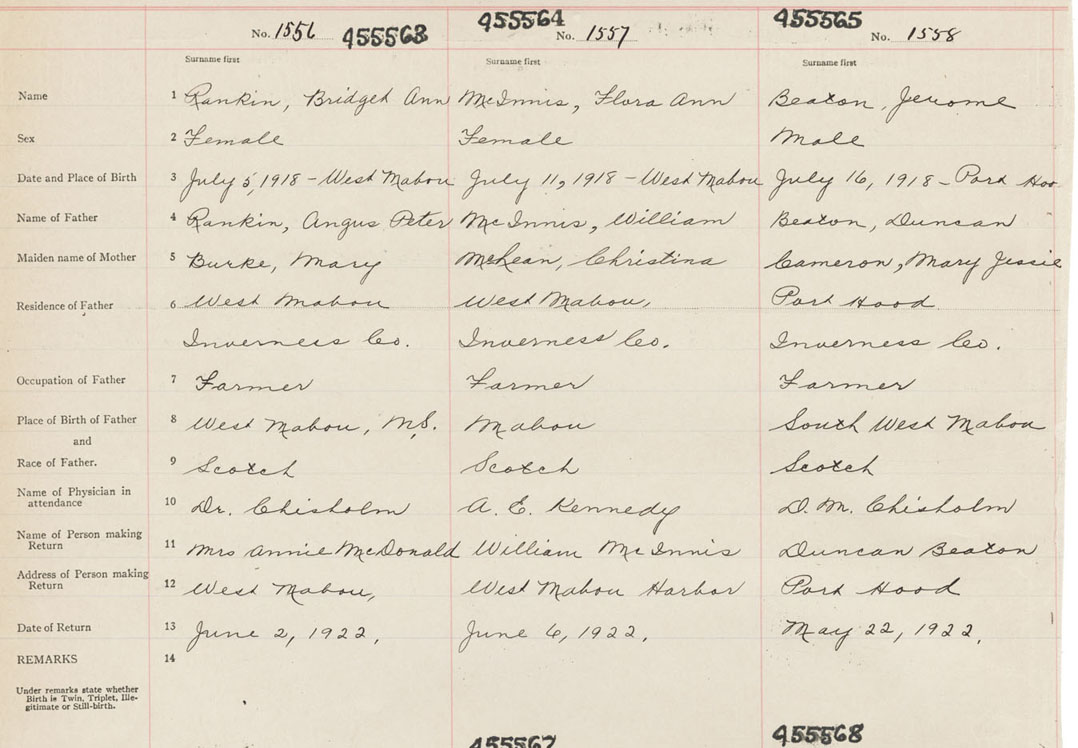 No. 1556 455563 455564 No. 1557 455565 No. 1558
Surname first Surname first Surname first
Name 1 Rankin, Bridget Ann McInnis, Flora Ann Beaton, Jerome
Sex 2 Female Female Male
Date and Place of Birth 3 July 5, 1918 - West Mabou July 11, 1918 - West Mabou July 16, 1918 - Port Hoo
Name of Father 4 Rankin, Angus Peter McInnis, William Beaton, Duncan
Maiden name of Mother 5 Burke, Mary McLean, Christina Cameron, Mary Jessie
Residence of Father 6 West Mabou West Mabou, Port Hood
Inverness Co. Inverness Co. Inverness Co.
Occupation of Father 7 Farmer Farmer Farmer
Place of Birth of Father 8 West Mabou, N.S. Mabou South West Mabou
and
Race of Father. 9 Scotch Scotch Scotch
Name of Physician in
attendance 10 Dr. Chisholm A. E. Kennedy D. M. Chisholm
Name of Person making
Return 11 Mrs Annie McDonald William McInnis Duncan Beaton
Address of Person making
Return 12 West Mabou, West Mabou Harbor Port Hood
Date of Return 13 June 2, 1922, June 6, 1922, May 22, 1922,
REMARKS 14
Under remarks state whether
Birth is Twin, Triplet, Ille-
gitimate or Still-birth.
455567 455568